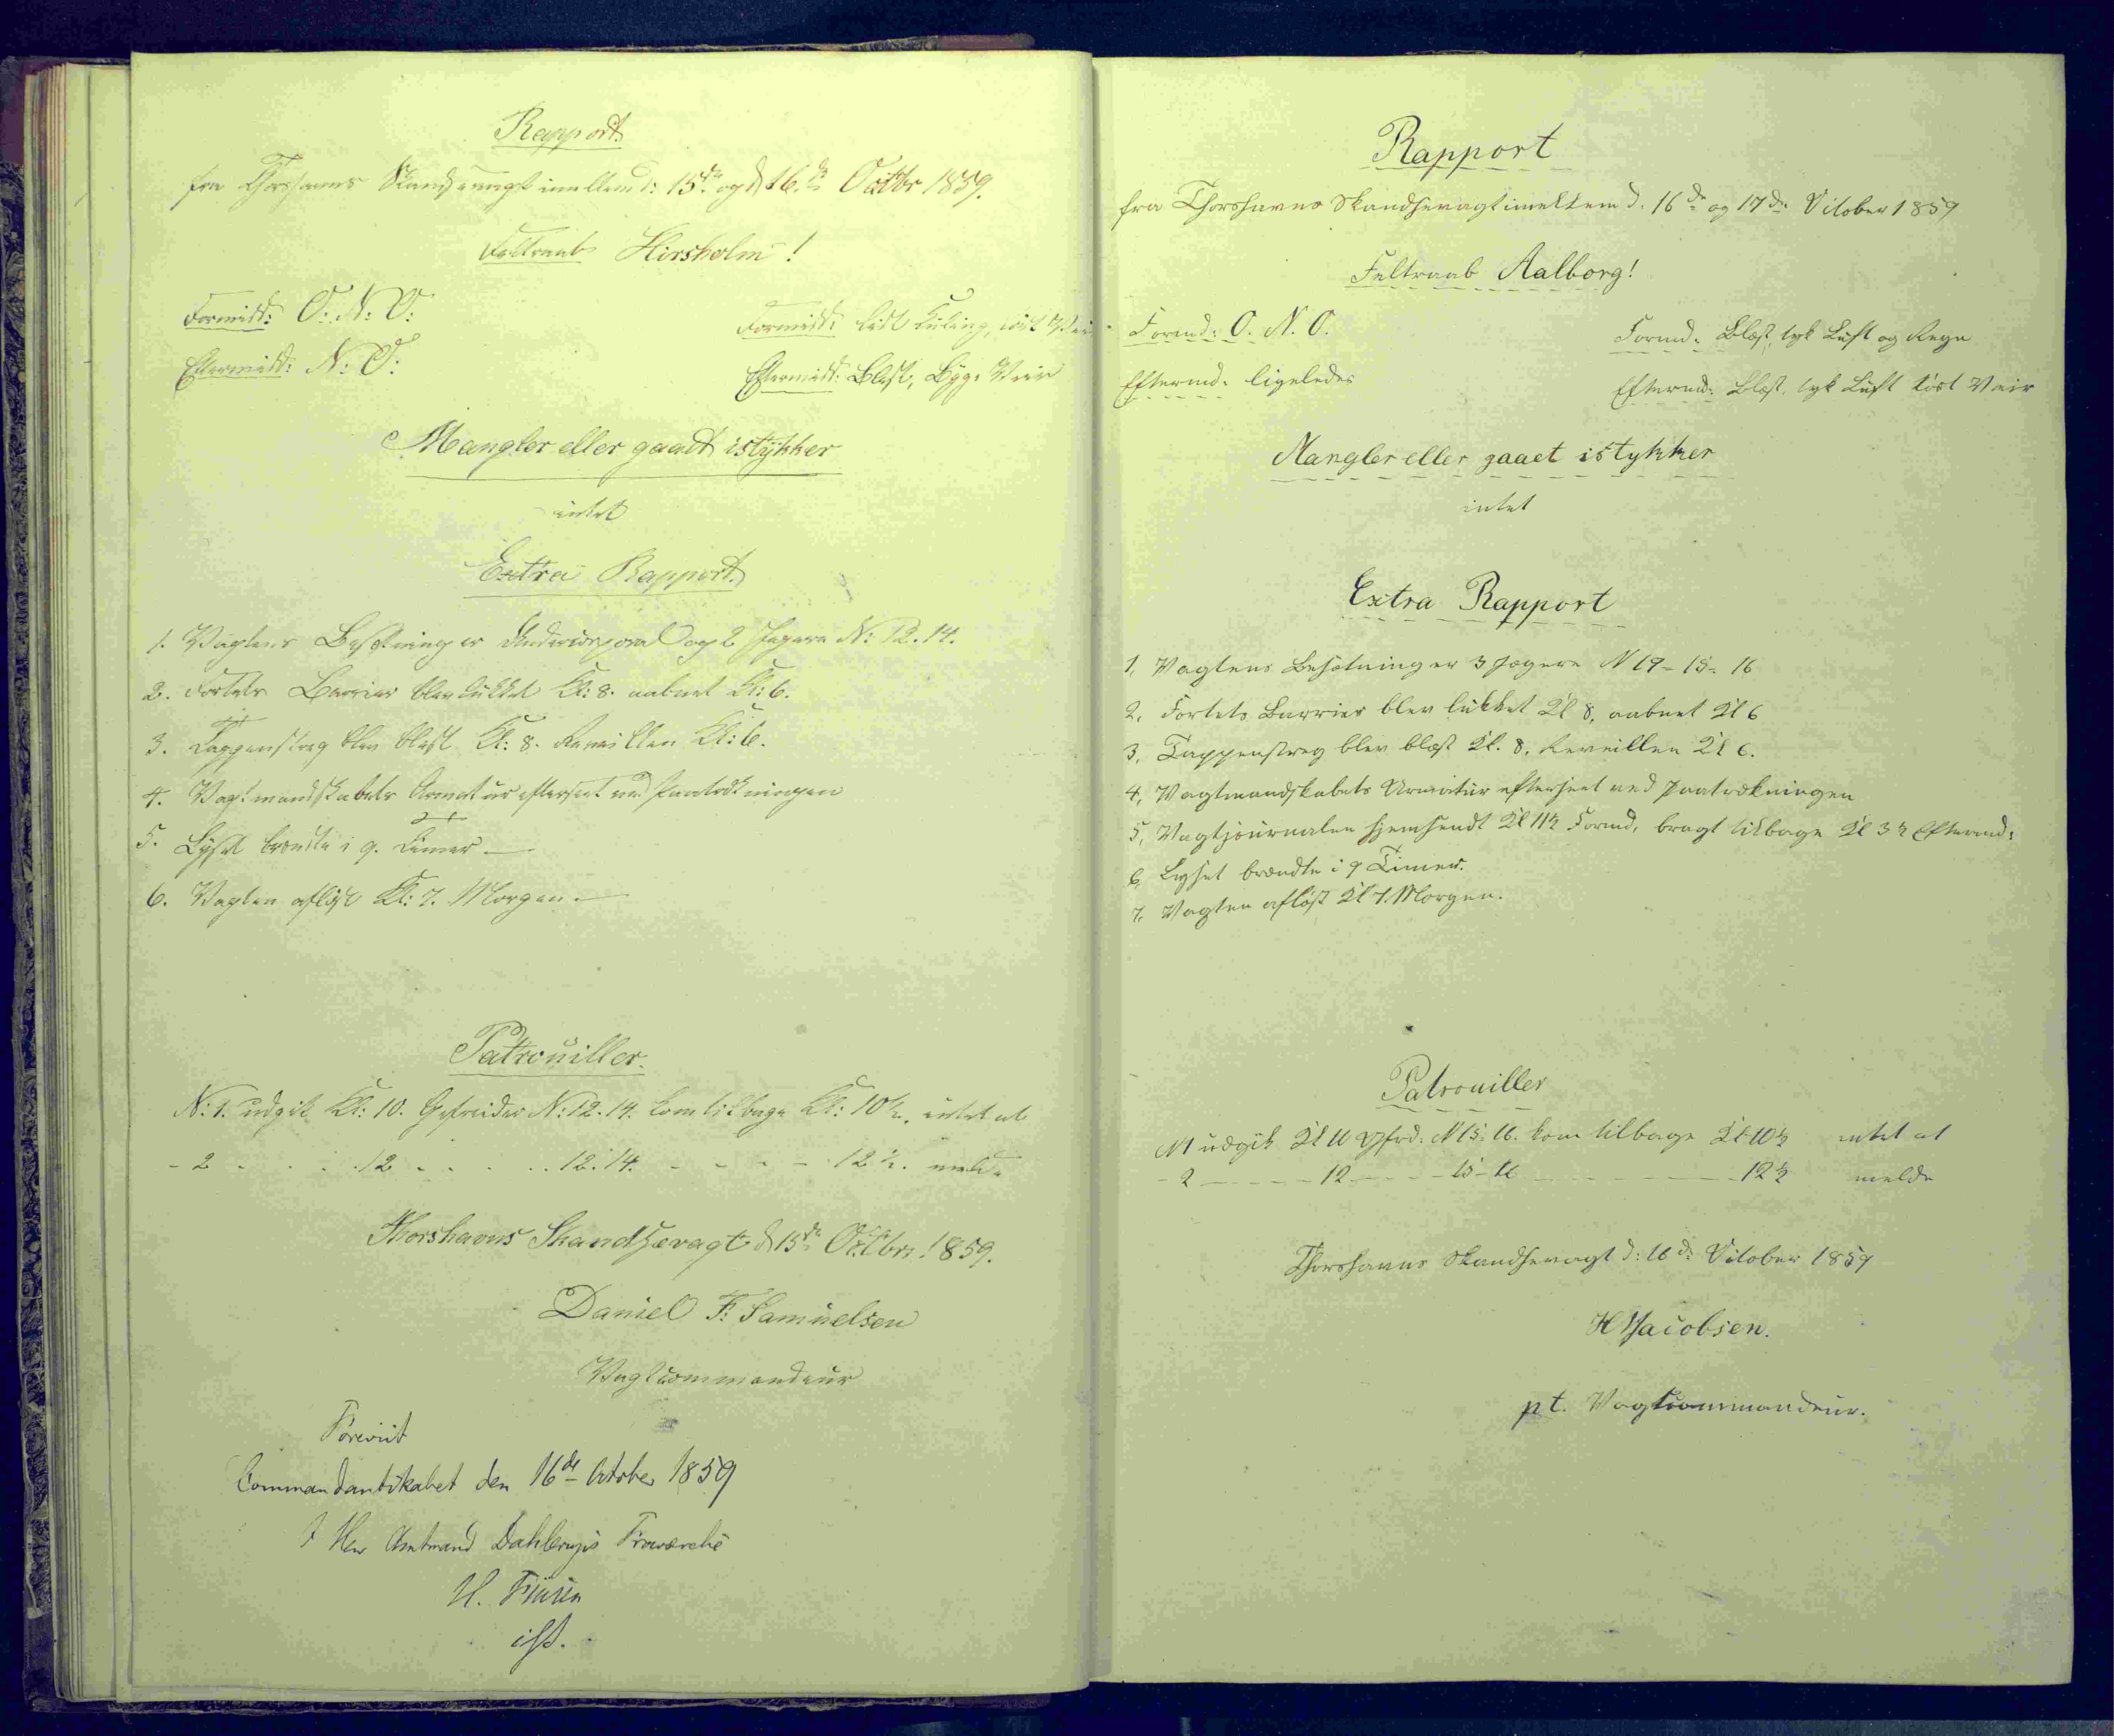 Rapport
fra Thorshavns Skandsevagt imellem d: 15de og d 16de Octbr 1859.
Feltraab Hirsholm!
Formidd: O. N: O:
Formidd: lidt Kuling, tört Veir
Eftermidd: N: O:
Eftermidd: Blæst, Byge Veir
Mangler eller gaaet istykker
intet
Extra Rapport
1. Vagtens Besætning er Undercorporal og 2 Jægere N: 12. 14.
2. Fortets Barrier blev lukket Kl: 8. aabnet Kl: 6.
3. Tappenstreg blev blæst Kl: 8. Reveillen Kl: 6.
4. Vagtmandskabets Armatur efterseet ved Paatrækningen
5. Lyset brændte i 9. Timer
6. Vagten aflöst Kl: 7. Morgen.
Patrouiller.
N: 1. udgik Kl: 10. Gefreider N: 12. 14. kom tilbage Kl: 10½. intet at
- 2 . . . 12 . . . . 12. 14. - - - - 12½. melde
Thorshavns Skandsevagt d 15de Octbr. 1859.
Daniel F: Samuelsen
Vagtcommandeur
Forevist
Commandantskabet den 16de October 1859
I Herr Amtmand Dahlerups Fraværelse
H. Müller
cst.
Rapport
fra Thorshavns Skandsevagt imellem d. 16de og 17de October 1859
Feltraab Aalborg!
Formd: O. N. O.
Formd: Blæst, tyk Luft og Regn
Eftermd: ligeledes
Eftermd: Blæst, tyk Luft tört Veir
Mangler eller gaaet istykker
intet
Extra Rapport
1, Vagtens Besætning er 3 Jægere N 19 - 15 - 16
2, Fortets Barrier blev lukket Kl 8, aabnet Kl 6
3, Tappenstreg blev blæst Kl. 8, Reveillen Kl 6.
4, Vagtmandskabets Armatur efterseet ved Paatrækningen
5, Vagtjournalen hjemsendt Kl 11½ Formd, bragt tilbage Kl 3½ Eftermd:
6, Lyset brændte i 9 Timer.
7, Vagten aflöst Kl 7. Morgen.
Patrouiller
N1 udgik Kl 10 Gfrd: N 15 - 16. kom tilbage Kl 10½ intet at
- 2 - - - - 12 - - - - 15 - 16 - - - - - - 12½ melde
Thorshavns Skandsevagt d: 16de October 1859
H Jacobsen.
pt. Vagtcommandeur.